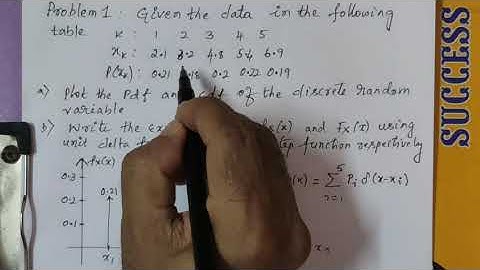 Problem 1 : Given the data in the following
table K : 1 2 3 4 5
xₖ : 2.1 3.2 4.8 5.4 6.9
P(xₖ) : 0.21 .18 0.2 0.22 0.19
a) Plot the Pdf an of the discrete random
variable
b) Write the and Fx(x) using
unit delta step function respectively
fx(x)
0.3
0.2
0.1
0.21
x₁
(x) = Σ Pᵢ δ(x-xᵢ)
5
SUCCESS